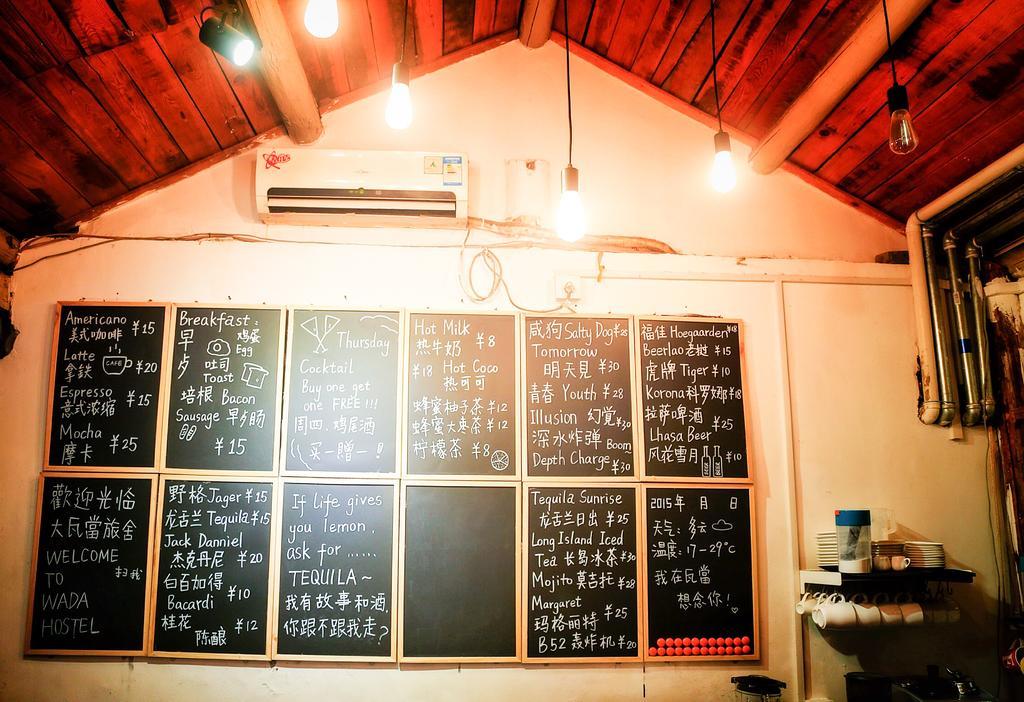 Americano ¥15
美式咖啡
Latte
拿鉄 CAFE ¥20
Espresso
意式浓缩 ¥15
Mocha
摩卡 ¥25
Breakfast:
早 鸡蛋
夕 Egg
吐司
Toast
培根 Bacon
Sausage 早夕肠
¥15
Thursday
Cocktail
Buy one get
one FREE!!!
周四.鸡尾酒
买一赠一!
Hot Milk
热牛奶 ¥8
¥18 Hot Coco
热可可
蜂蜜柚子茶 ¥12
蜂蜜大枣茶 ¥12
柠檬茶 ¥8
咸狗 Salty Dog ¥28
Tomorrow
明天見 ¥30
青春 Youth ¥28
Illusion 幻覚 ¥30
深水炸彈 Boom
Depth Charge ¥30
福佳 Hoegaarden ¥18
Beerlao 老挝 ¥15
虎牌 Tiger ¥10
Korona 科罗娜 ¥18
拉萨啤酒 ¥25
Lhasa Beer
风花雪月 ¥10
歡迎光临
大瓦當旅舍
WELCOME 扫我
TO
WADA
HOSTEL
野格 Jager ¥15
龙舌兰 Tequila ¥15
Jack Danniel
杰克丹尼 ¥20
白百加得
Bacardi ¥10
桂花
陈酿 ¥12
If life gives
you lemon,
ask for ......
TEQUILA~
我有故事和酒.
你跟不跟我走?
Tequila Sunrise
龙舌兰日出 ¥25
Long Island Iced
Tea 长岛冰茶 ¥30
Mojito 莫吉托 ¥28
Margaret
玛格丽特 ¥25
B52 轰炸机 ¥20
2015年 月 日
天气: 多云
温度: 17-29°C
我在瓦當
想念你!